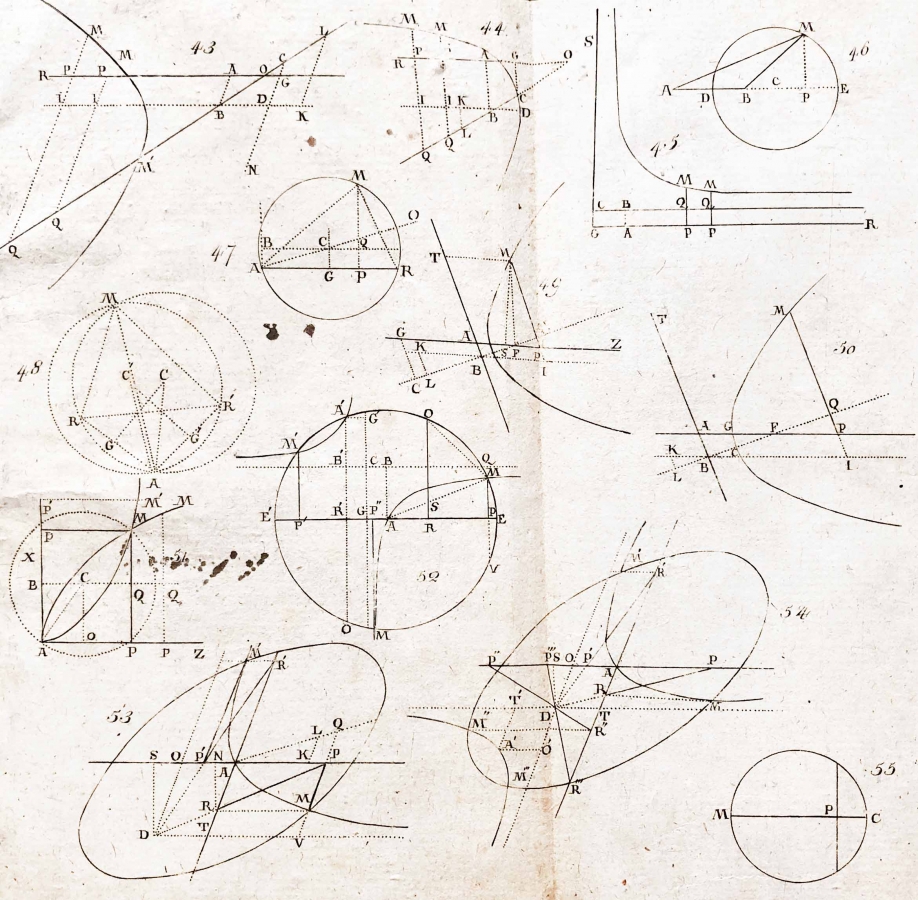 43
L
M
M
R P P A O C
G
I I B D K
M'
N
Q Q
44
M M
P A G O
R
I I K B C D
L
Q Q
S
45
M M
C B Q Q
G A P P R
46
M
A D B C P E
47
M
O
B C Q
A G P R
48
M
C' C
R R'
G G'
A
49
T M
G A S P P Z
K B I
C L
50
T M
Q
A G F P
K B C I
L
51
P' M' M
P M
X
B C Q Q
A O P P Z
52
A' G' O
M' Q
B' C B M
E' P' R' G P" A R S P E
V
O M
53
M' R'
L Q
S O P' N A K P
R M
D T V
54
M' R'
P" P''' S O P' A P
R
T' D T M
M" R"
A' O'
M'''
R'''
55
M P C